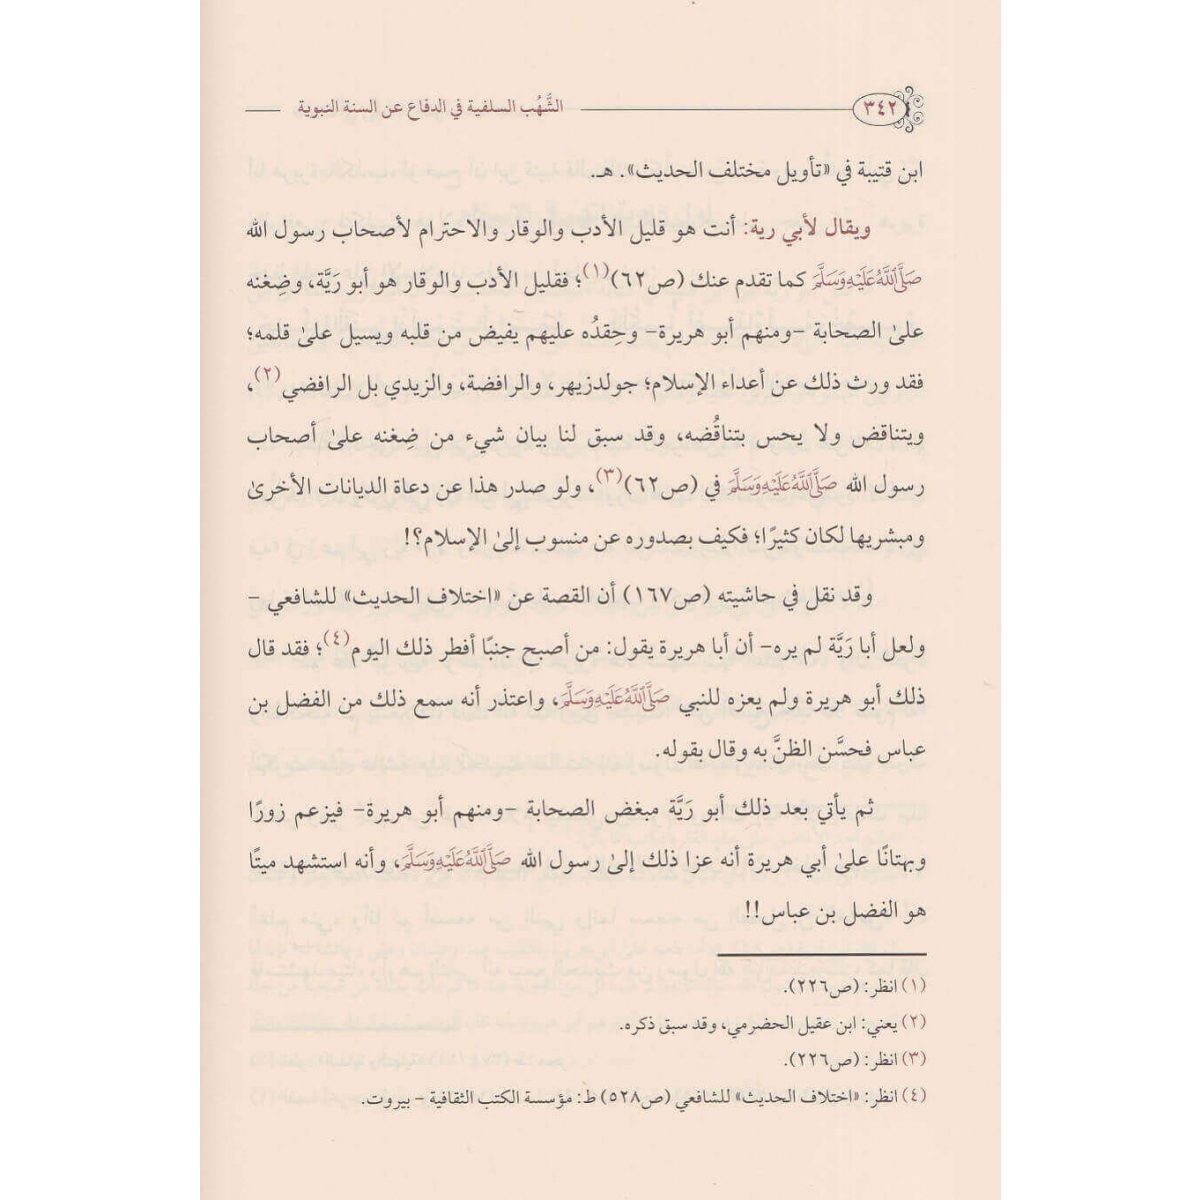 ٣٤٢ الشُّهُب السلفية في الدفاع عن السنة النبوية
ابن قتيبة في «تأويل مختلف الحديث». هـ.
ويقال لأبي رية: أنت هو قليل الأدب والوقار والاحترام لأصحاب رسول الله
صَلَّى اللَّهُ عَلَيْهِ وَسَلَّمَ كما تقدم عنك (ص٦٢)(١)؛ فقليل الأدب والوقار هو أبو رَيَّة، وضِغنه
علىٰ الصحابة -ومنهم أبو هريرة- وحِقدُه عليهم يفيض من قلبه ويسيل علىٰ قلمه؛
فقد ورث ذلك عن أعداء الإسلام؛ جولدزيهر، والرافضة، والزيدي بل الرافضي(٢)،
ويتناقض ولا يحس بتناقُضه، وقد سبق لنا بيان شيء من ضِغنه علىٰ أصحاب
رسول الله صَلَّى اللَّهُ عَلَيْهِ وَسَلَّمَ في (ص٦٢)(٣)، ولو صدر هذا عن دعاة الديانات الأخرىٰ
ومبشريها لكان كثيرًا؛ فكيف بصدوره عن منسوب إلىٰ الإسلام؟!
وقد نقل في حاشيته (ص١٦٧) أن القصة عن «اختلاف الحديث» للشافعي -
ولعل أبا رَيَّة لم يره- أن أبا هريرة يقول: من أصبح جنبًا أفطر ذلك اليوم(٤)؛ فقد قال
ذلك أبو هريرة ولم يعزه للنبي صَلَّى اللَّهُ عَلَيْهِ وَسَلَّمَ، واعتذر أنه سمع ذلك من الفضل بن
عباس فحسَّن الظنَّ به وقال بقوله.
ثم يأتي بعد ذلك أبو رَيَّة مبغض الصحابة -ومنهم أبو هريرة- فيزعم زورًا
وبهتانًا علىٰ أبي هريرة أنه عزا ذلك إلىٰ رسول الله صَلَّى اللَّهُ عَلَيْهِ وَسَلَّمَ، وأنه استشهد ميتًا
هو الفضل بن عباس!!
(١) انظر: (ص٢٢٦).
(٢) يعني: ابن عقيل الحضرمي، وقد سبق ذكره.
(٣) انظر: (ص٢٢٦).
(٤) انظر: «اختلاف الحديث» للشافعي (ص٥٢٨) ط: مؤسسة الكتب الثقافية - بيروت.